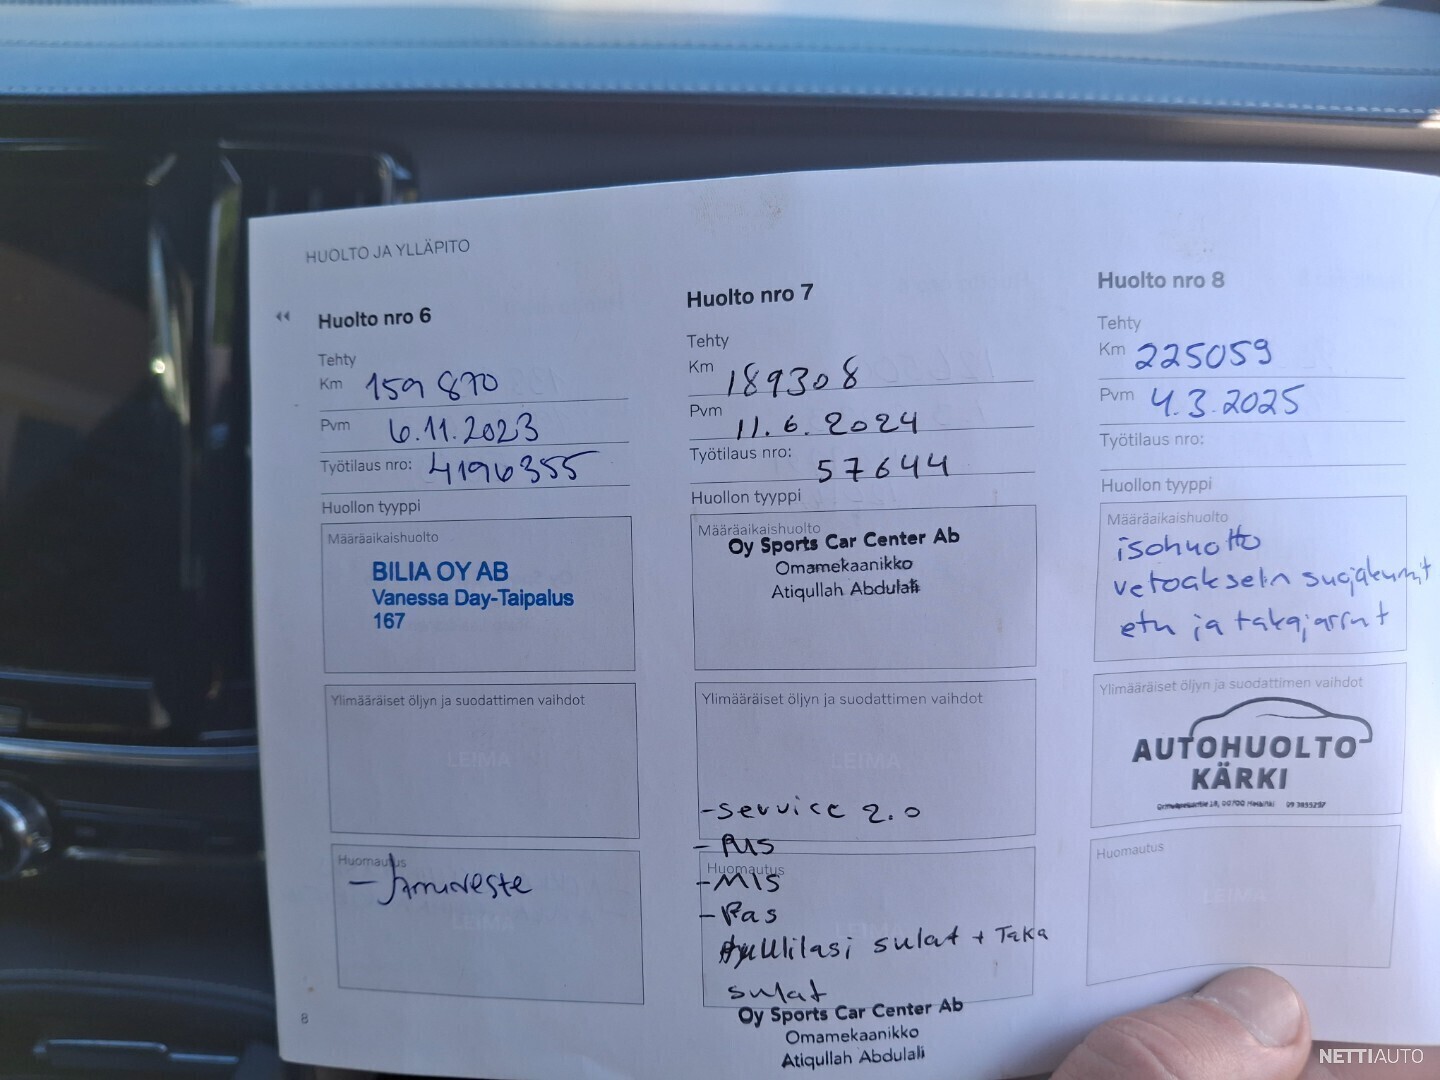 HUOLTO JA YLLÄPITO
Huolto nro 6
Tehty
Km 159 870
Pvm 6.11.2023
Työtilaus nro: 4196355
Huollon tyyppi
Määräaikaishuolto
BILIA OY AB
Vanessa Day-Taipalus
167
Ylimääräiset öljyn ja suodattimen vaihdot
LEIMA
Huomautus
- Jarruneste
LEIMA
8
Huolto nro 7
Tehty
Km 189308
Pvm 11.6.2024
Työtilaus nro: 57644
Huollon tyyppi
Määräaikaishuolto
Oy Sports Car Center Ab
Omamekaanikko
Atiqullah Abdulali
Ylimääräiset öljyn ja suodattimen vaihdot
LEIMA
- service 2.0
Huomautus
- MIS
- Ras
sulat + Taka
sulat
Oy Sports Car Center Ab
Omamekaanikko
Atiqullah Abdulali
Huolto nro 8
Tehty
Km 225059
Pvm 4.3.2025
Työtilaus nro:
Huollon tyyppi
Määräaikaishuolto
isohuolto
vetoakselin suojakumit
etu ja takajarrut
Ylimääräiset öljyn ja suodattimen vaihdot
AUTOHUOLTO
KÄRKI
00700 Helsinki
Huomautus
LEIMA
NETTIAUTO